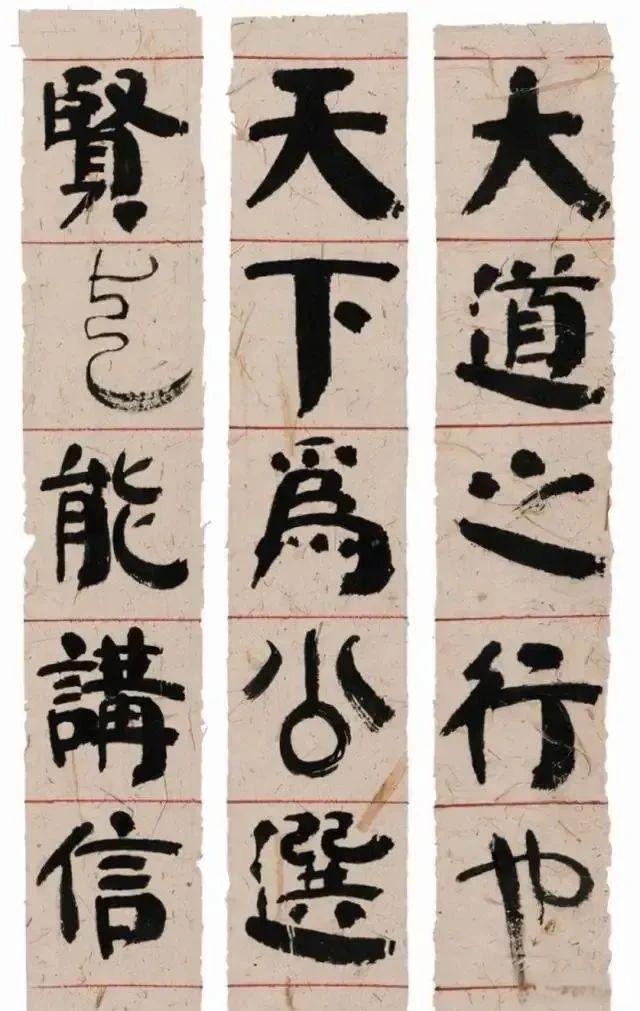 大道之行也
天下爲公選
賢与能講信